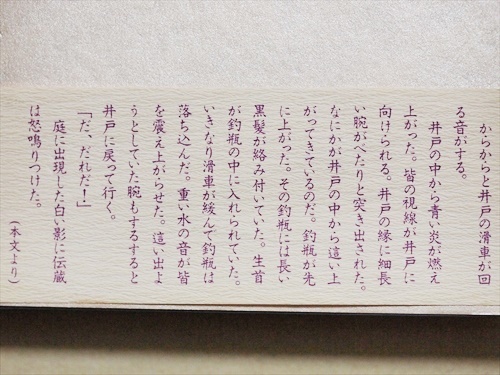 からからと井戸の滑車が回
る音がする。
井戸の中から青い炎が燃え
上がった。皆の視線が井戸に
向けられる。井戸の縁に細長
い腕がべたりと突き出された。
なにかが井戸の中から這い上
がってきているのだ。釣瓶が先
に上がった。その釣瓶には長い
黒髪が絡み付いていた。生首
が釣瓶の中に入れられていた。
いきなり滑車が緩んで釣瓶は
落ち込んだ。重い水の音が皆
を震え上がらせた。這い出よ
うとしていた腕もするすると
井戸に戻って行く。
「だ、だれだ！」
庭に出現した白い影に伝蔵
は怒鳴りつけた。
(本文より)